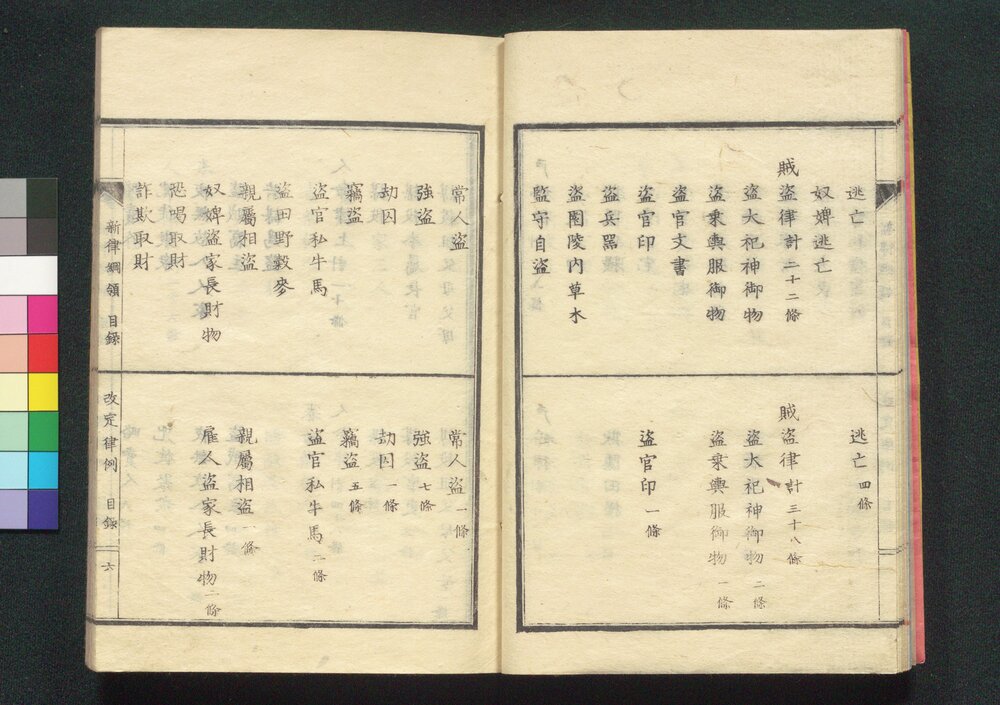 逃亡
奴婢逃亡
賊盜律計二十二條
盜大祀神御物
盜乘輿服御物
盜官文書
盜官印
盜兵器
盜園陵内草木
監守自盜
逃亡四條
賊盜律計三十八條
盜大祀神御物二條
盜乘輿服御物一條
盜官印一條
常人盜
強盜
劫囚
竊盜
盜官私牛馬
盜田野穀麥
親屬相盜
奴婢盜家長財物
恐喝取財
詐欺取財
常人盜一條
強盜七條
劫囚一條
竊盜五條
盜官私牛馬二條
親屬相盜一條
雇人盜家長財物二條
新律綱領 目録
改定律例 目録 六